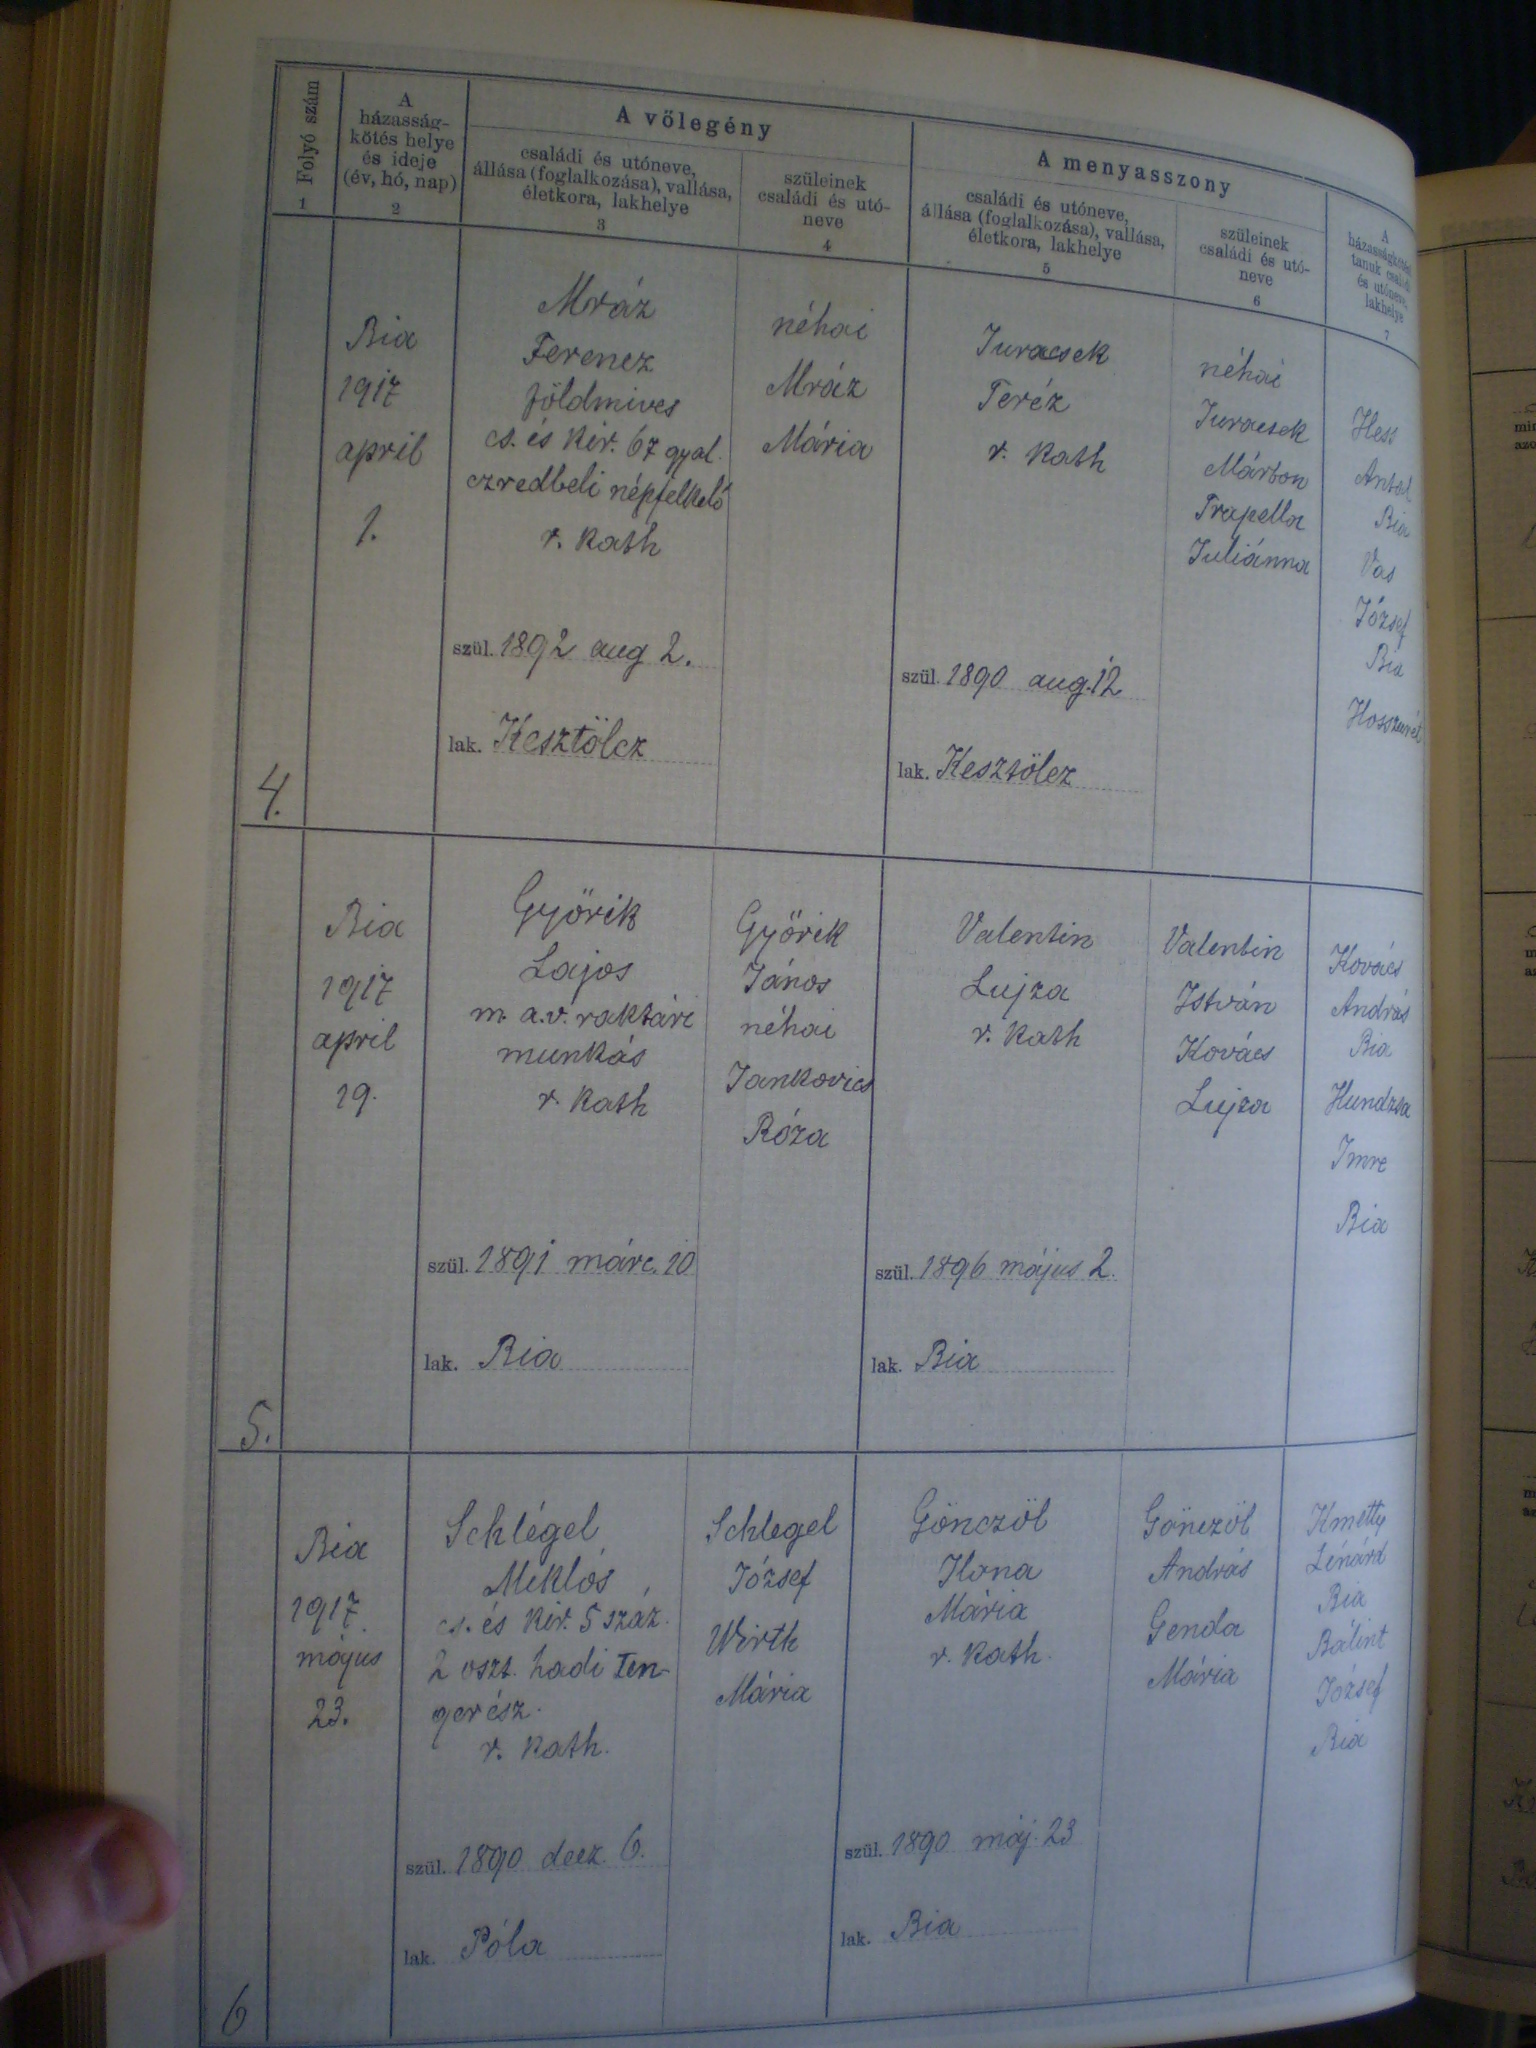 Folyó szám
1
A
házasság-
kötés helye
és ideje
(év, hó, nap)
2
A vőlegény
családi és utóneve,
állása (foglalkozása), vallása,
életkora, lakhelye
3
szüleinek
családi és utó-
neve
4
A menyasszony
családi és utóneve,
állása (foglalkozása), vallása,
életkora, lakhelye
5
szüleinek
családi és utó-
neve
6
A
házasságkötési
tanuk családi
és utóneve,
lakhelye
7
4.
Bia
1917
april
1.
Mráz
Ferencz
földmives
cs. és kir. 67 gyal.
ezredbeli népfelkelő
r. kath
szül. 1892 aug 2.
lak. Kesztölcz
néhai
Mráz
Mária
Juracsek
Teréz
r. kath
szül. 1890 aug. 12
lak. Kesztölcz
néhai
Juracsek
Márton
Trapella
Juliánna
Hess
Antal
Bia
Vas
József
Bia
Hosszurét
5.
Bia
1917
april
19.
Győrik
Lajos
m. a. v. raktári
munkás
r. kath
szül. 1891 márc. 10
lak. Bia
Győrik
János
néhai
Jankovics
Róza
Valentin
Lujza
r. kath
szül. 1896 május 2.
lak. Bia
Valentin
István
Kovács
Lujza
Kovács
András
Bia
Hundzsa
Imre
Bia
6
Bia
1917.
május
23.
Schlégel
Miklós
cs. és kir. 5 száz.
2 oszt. hadi ten-
gerész.
r. kath.
szül. 1890 decz. 6.
lak. Póla
Schlegel
József
Wirth
Mária
Gönczöl
Ilona
Mária
r. kath.
szül. 1890 máj. 23
lak. Bia
Gönczöl
András
Genda
Mária
Kmetty
Lénárd
Bia
Bálint
József
Bia